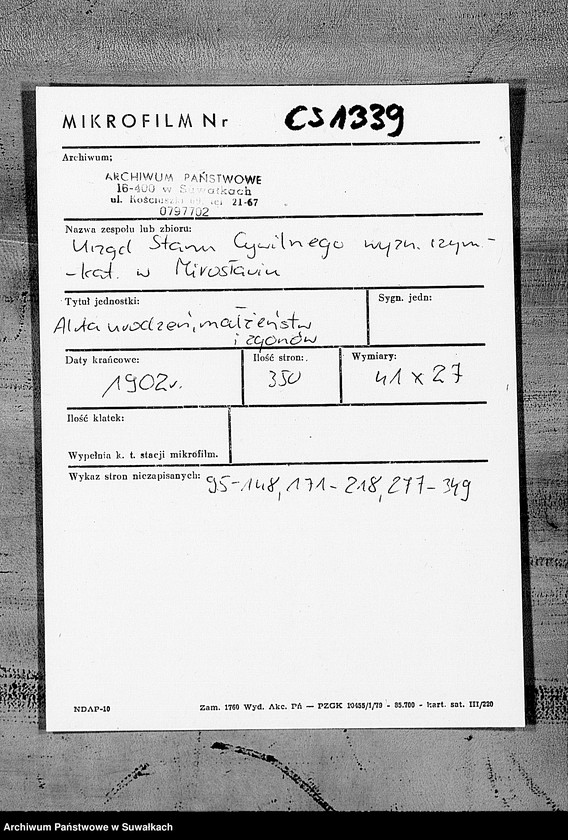 MIKROFILM Nr CS1339
Archiwum;
ARCHIWUM PAŃSTWOWE
16-400 w Suwałkach
ul. Kościuszki 69, tel 21-67
0797702
Nazwa zespołu lub zbioru:
Urząd Stanu Cywilnego wyzn. rzym.-
-kat. w Mirosławiu
Tytuł jednostki:
Sygn. jedn:
Akta urodzeń, małżeństw
i zgonów
Daty krańcowe: Ilość stron: Wymiary:
1902r. 350 41 x 27
Ilość klatek:
Wypełnia k. t. stacji mikrofilm.
Wykaz stron niezapisanych: 95-148, 171-218, 277-349
NDAP-10 Zam. 1760 Wyd. Akc. Pń — PZGK 10455/1/79 - 85.700 - kart. sat. III/220
Archiwum Państwowe w Suwałkach